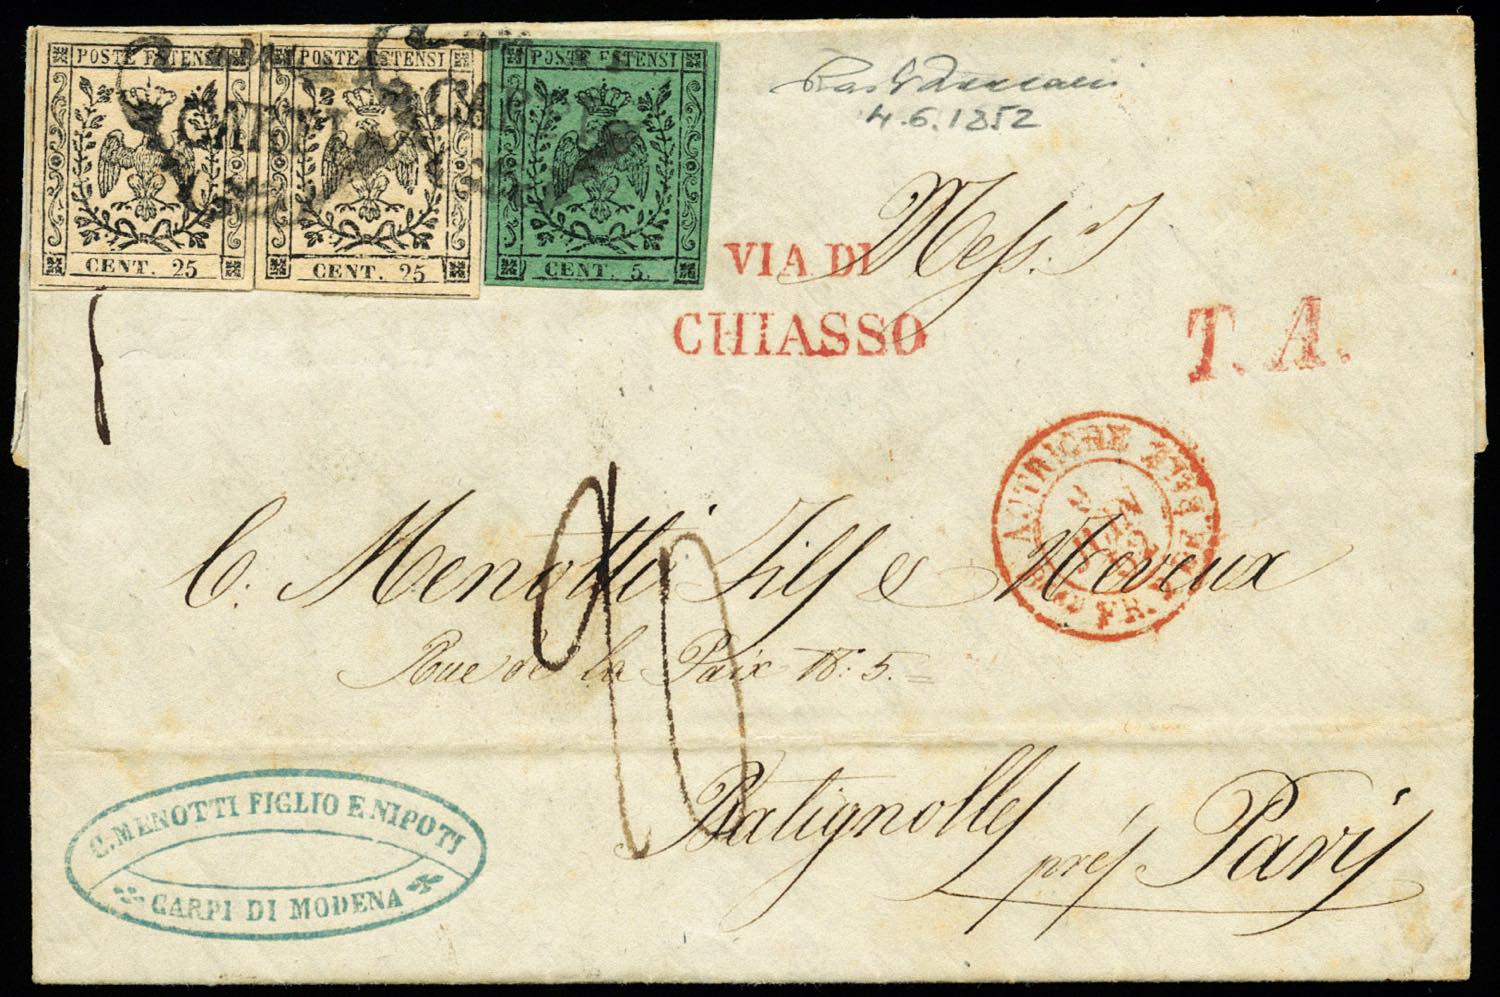 POSTE ESTENSI
CENT. 25
POSTE ESTENSI
CENT. 25
POSTE ESTENSI
CENT. 5.
CARPI
4.6.1852
VIA DI
CHIASSO
T. A.
Mess.rs
AUTRICHE
2
FR.
C. Menotti Fils & Moreux
Rue de la Paix N. 5.
Batignolles près Paris
C. MENOTTI FIGLIO E NIPOTI
CARPI DI MODENA